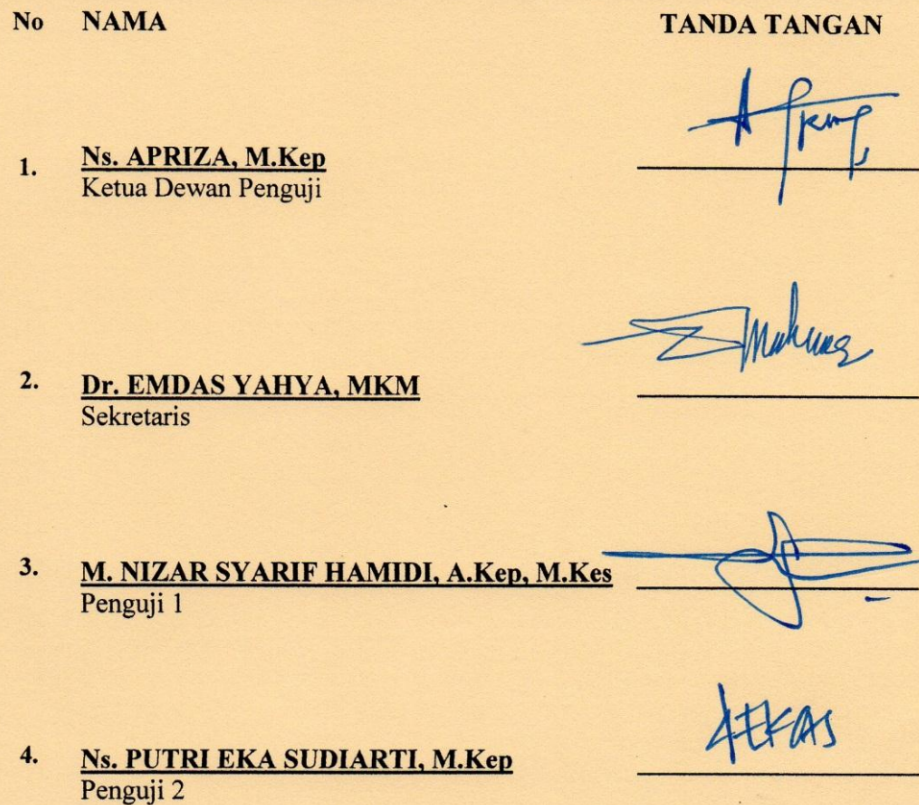 No NAMA TANDA TANGAN
1. Ns. APRIZA, M.Kep
Ketua Dewan Penguji
2. Dr. EMDAS YAHYA, MKM
Sekretaris
3. M. NIZAR SYARIF HAMIDI, A.Kep, M.Kes
Penguji 1
4. Ns. PUTRI EKA SUDIARTI, M.Kep
Penguji 2